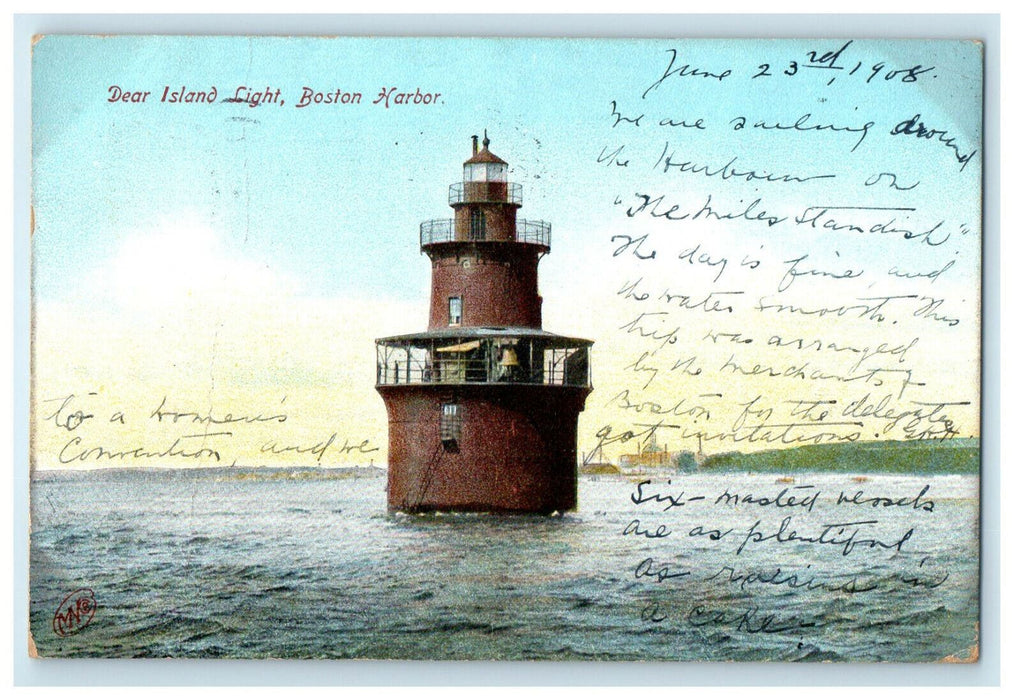 Dear Island Light, Boston Harbor.
June 23rd, 1908.
We are sailing around
the Harbour on
"The Miles Standish"
The day is fine and
the water smooth. This
trip was arranged
by the Merchants of
Boston for the delegates
to a Women's
Convention, and we
got invitations.
Six-masted vessels
are as plentiful
as raisins in
a cake.